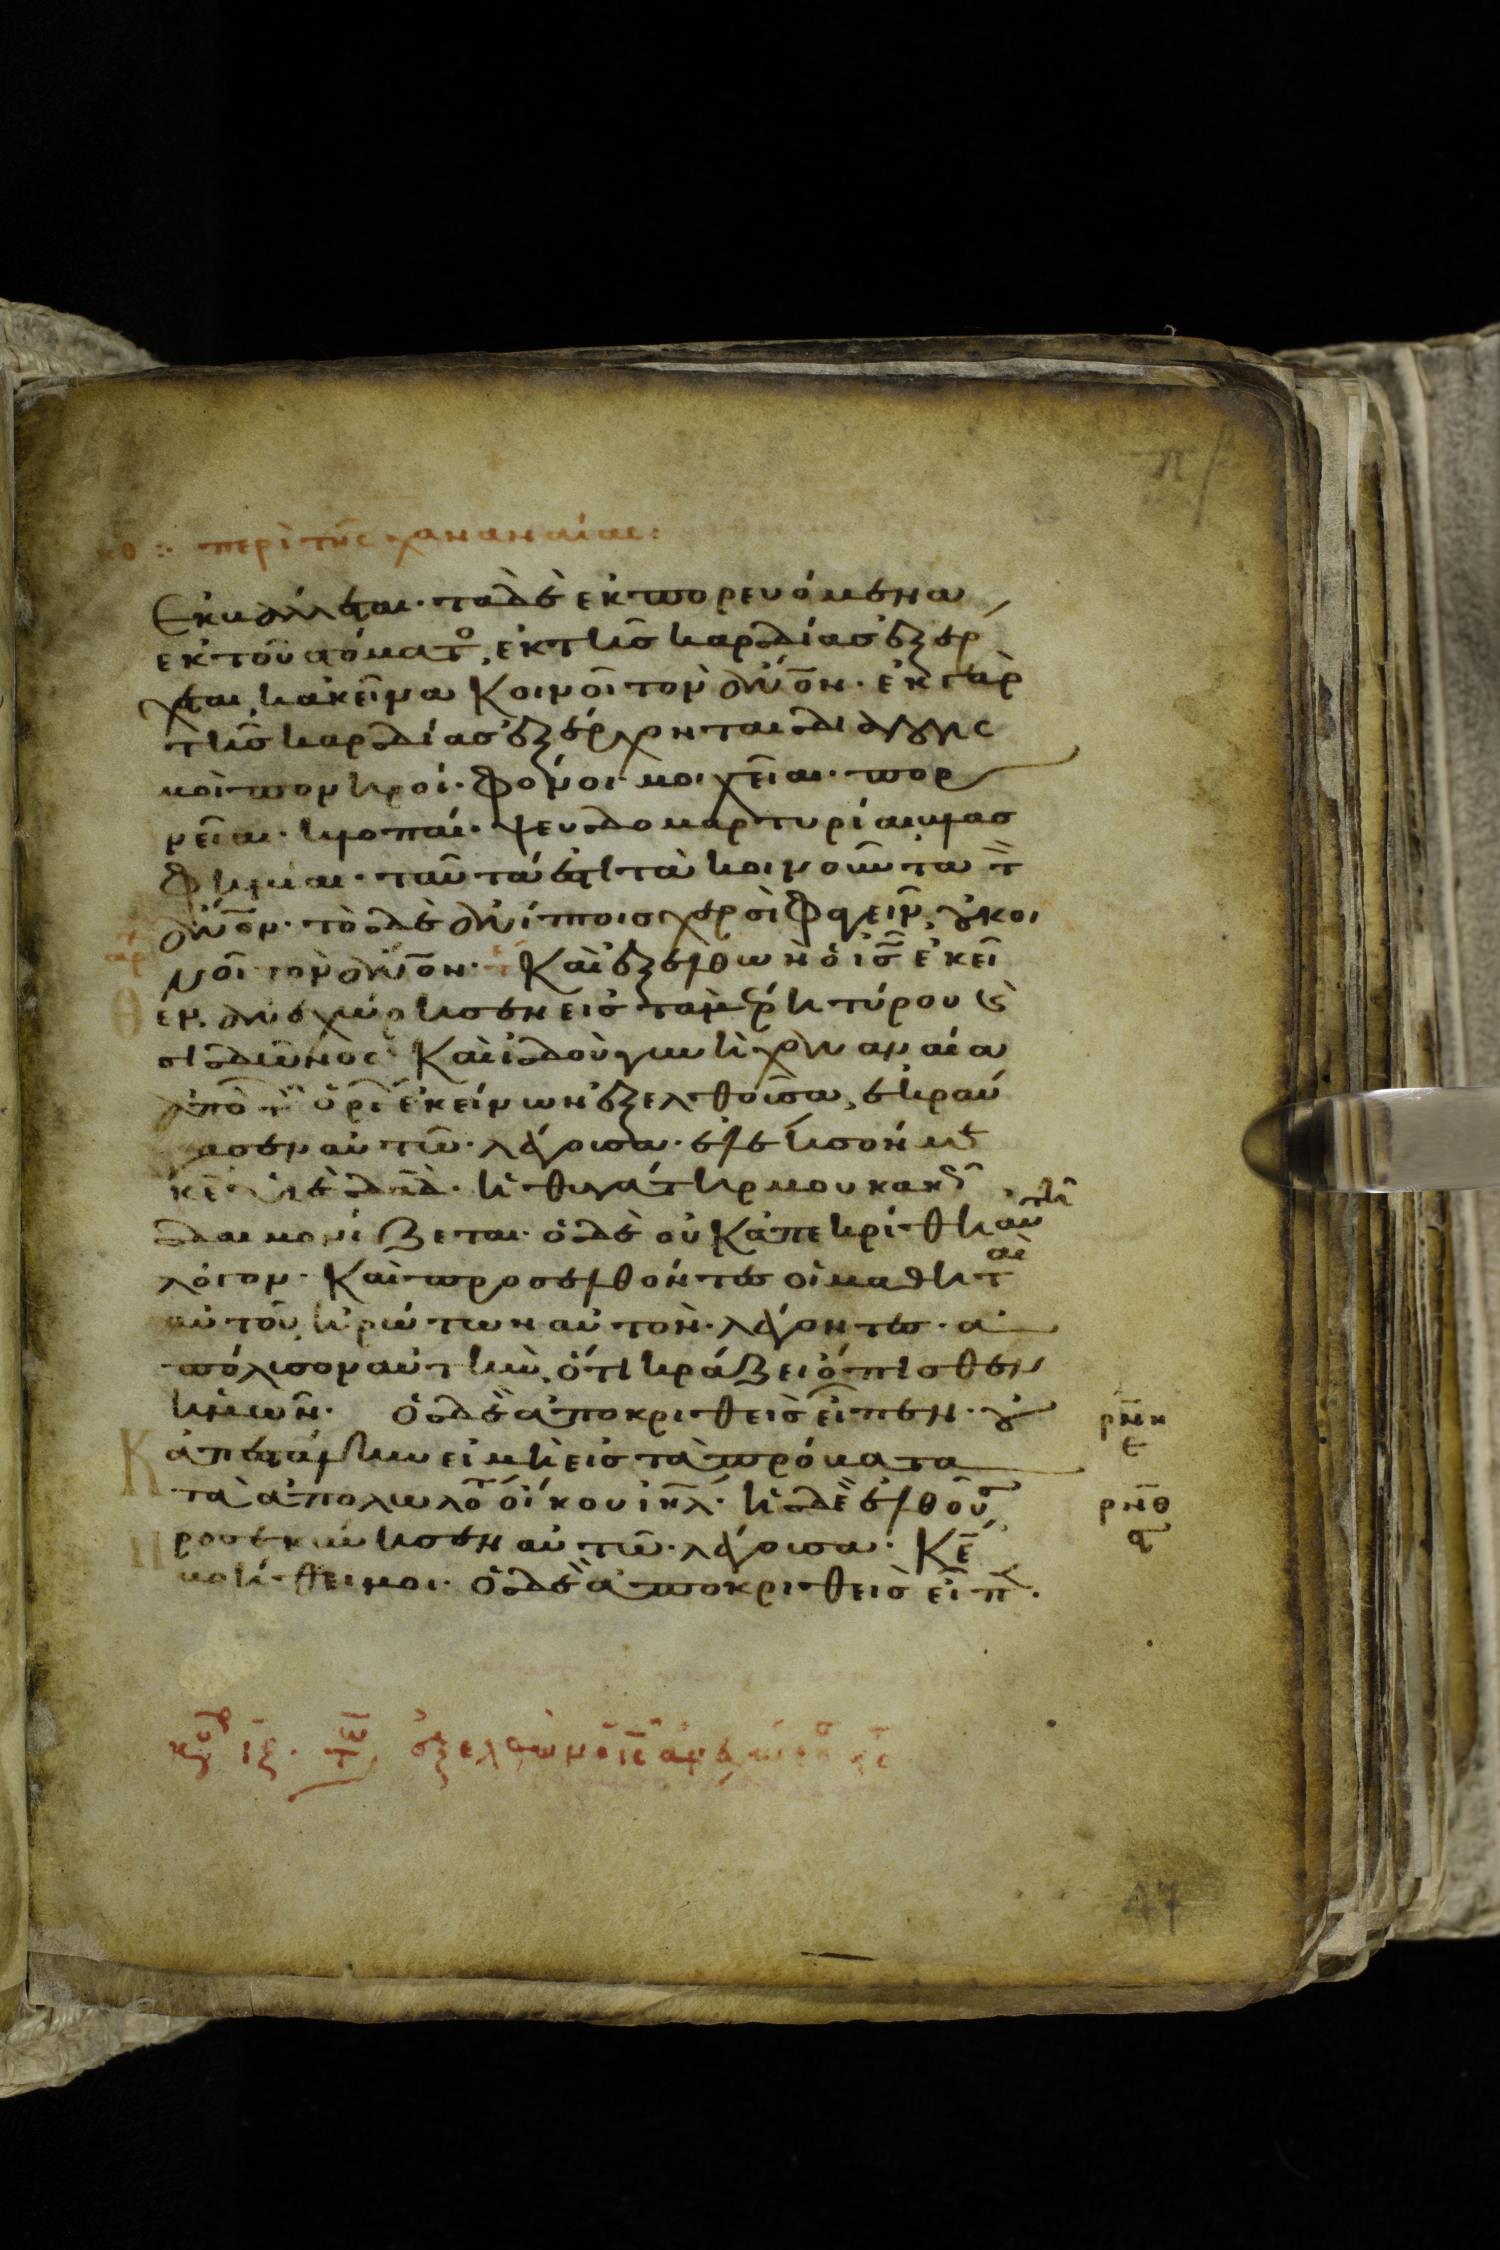 κθ :· περὶ τῆς χαναναίας:
Εκβάλλεται· τα δὲ ἐκπορευόμενα
ἐκ τοῦ στόματο, ἐκ τῆς καρδίας ἐξέρ
χεται, κακεῖνα κοινοῖ τον ἄνον· ἐκ γὰρ
τῆς καρδίας ἐξέρχονται διαλογις
μοὶ πονηροί· φόνοι· μοιχεῖαι· πορ
νεῖαι· κλοπαί· ψευδομαρτυρίαι, βλασ
φημίαι· ταῦτά ἐστι τὰ κοινοῦντα τ
ἄνον· τὸ δὲ ἀνίπτοις χερσὶ φαγεῖν, οὐ κοι
νοῖ τὸν ἄνον· Καὶ ἐξελθων ὁ ις ἐκεῖ
θεν, ἀνεχώρησεν εἰς τα μέρη τύρου καὶ
σιδῶνος· Καὶ ἰδοὺ γυνὴ χαναναία
ἀπὸ τ ὁρί ἐκείνων ἐξελθοῦσα, ἐκραύ
γασεν αὐτῶ· λέγουσα· ἐλέησόν με
κε υἱὲ δαδ· ἡ θυγάτηρ μου κακῶ
δαιμονίζεται· ὁ δὲ οὐκ ἀπεκρίθη αυτῆ
λόγον· Καὶ προσελθόντες οἱ μαθηταὶ
αὐτοῦ, ἠρώτων αὐτὸν· λέγοντες· ἀ
πόλυσον αὐτὴν, ὅτι κράζει ὄπισθεν
ἡμῶν· ὁ δὲ ἀποκριθεὶς εἶπεν· οὐ
κ ἀπεστάλην εἰ μὴ εἰς τὰ πρόβατα
τὰ ἀπολωλο οἴκου ιηλ· ἡ δὲ ἐλθοῦσ
προσεκύνησεν αὐτῶ· λέγουσα· Κε
βοήθει μοι· ὁ δὲ ἀποκριθεὶς εἶπ·
ρνη
ε
ρνθ
ϛ
47